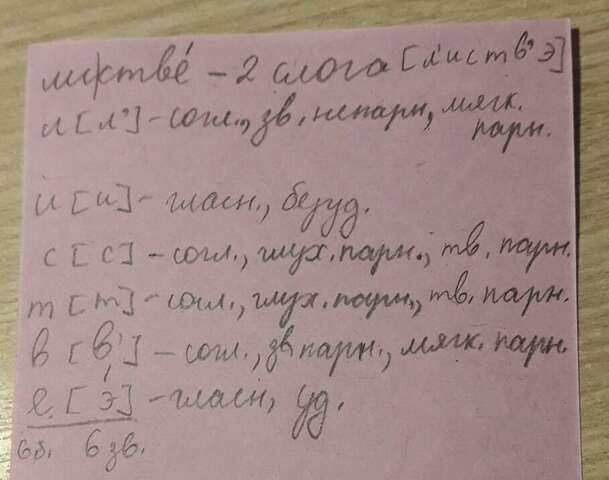 ли|ствé – 2 слога [л'иств'э]
л [л'] – согл., зв. непарн., мягк.
парн.
и [и] – гласн., безуд.
с [с] – согл., глух. парн., тв. парн.
т [т] – согл., глух. парн., тв. парн.
в [в'] – согл., зв. парн., мягк. парн.
е [э́] – гласн., уд.
6 б. 6 зв.